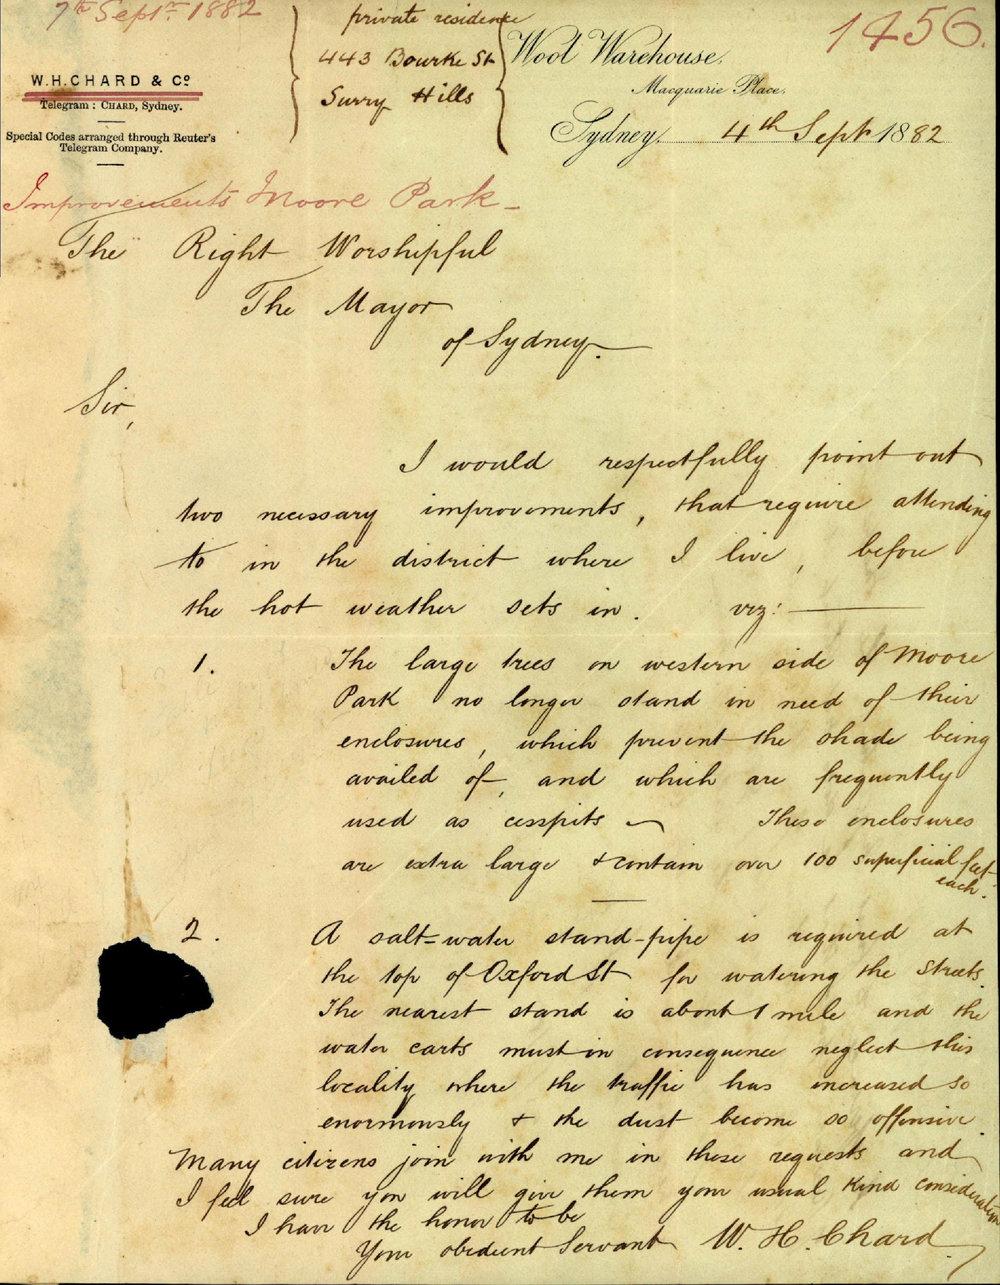 7th Septr. 1882
1456.
W. H. CHARD & Co.
Telegram : CHARD, Sydney.
Special Codes arranged through Reuter's
Telegram Company.
private residence
443 Bourke St
Surry Hills
Wool Warehouse,
Macquarie Place,
Sydney, 4th Sept 1882
Improvements Moore Park -
The Right Worshipful
The Mayor
of Sydney.
Sir,
I would respectfully point out
two necessary improvements, that require attending
to in the district where I live, before
the hot weather sets in. viz: —
1. The large trees on western side of Moore
Park no longer stand in need of their
enclosures, which prevent the shade being
availed of, and which are frequently
used as cesspits — These enclosures
are extra large & contain over 100 superficial feet
each.
2. A salt-water stand-pipe is required at
the top of Oxford St for watering the streets.
The nearest stand is about 1 mile and the
water carts must in consequence neglect this
locality where the traffic has increased so
enormously & the dust become so offensive.
Many citizens join with me in these requests and
I feel sure you will give them your usual kind consideration
I have the honor to be
Your obedient Servant W. H. Chard